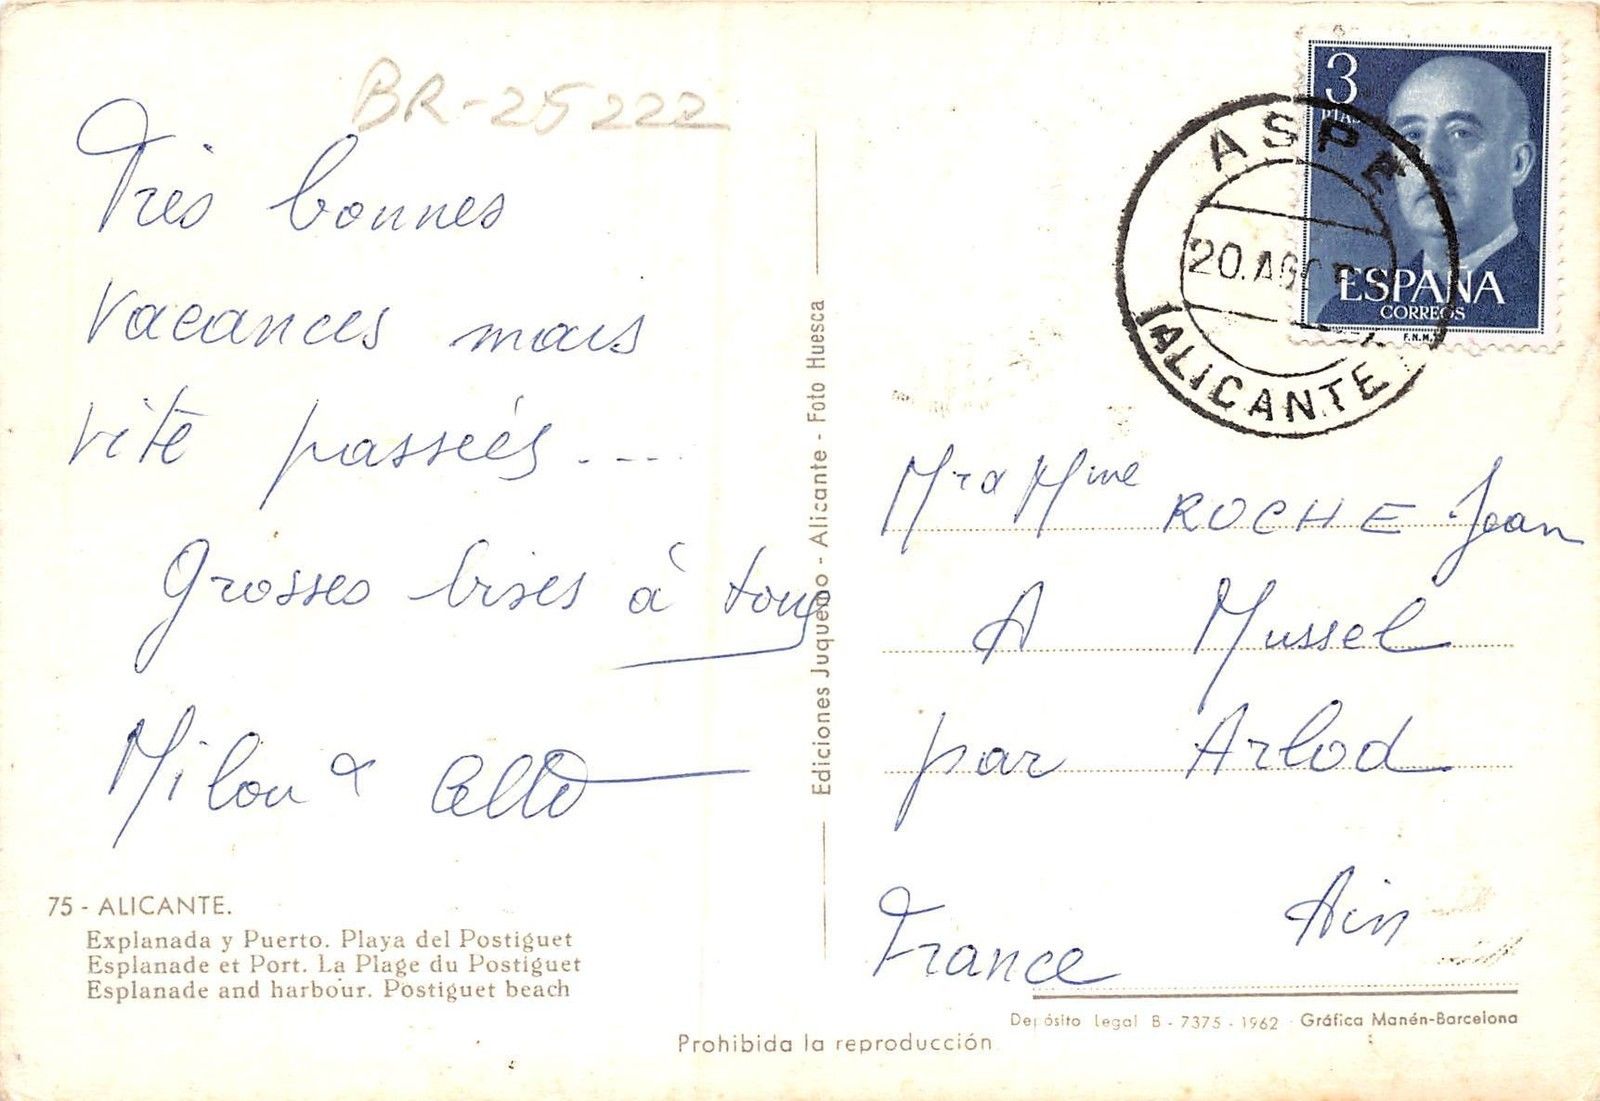 BR-25222
Très bonnes
vacances mais
vite passées ....
Grosses bises à tous
Milou &
75 - ALICANTE.
Explanada y Puerto. Playa del Postiguet
Esplanade et Port. La Plage du Postiguet
Esplanade and harbour. Postiguet beach
Ediciones Juquemo - Alicante - Foto Huesca
Prohibida la reproducción
3
PTAS
ESPAÑA
CORREOS
F.N.M.T.
ASPE
20. AGO
(ALICANTE)
Mr & Mme ROCHE Jean
A Mussel
par Arlod
Ain
France
Depósito Legal B - 7375 - 1962 - Gráfica Manén-Barcelona